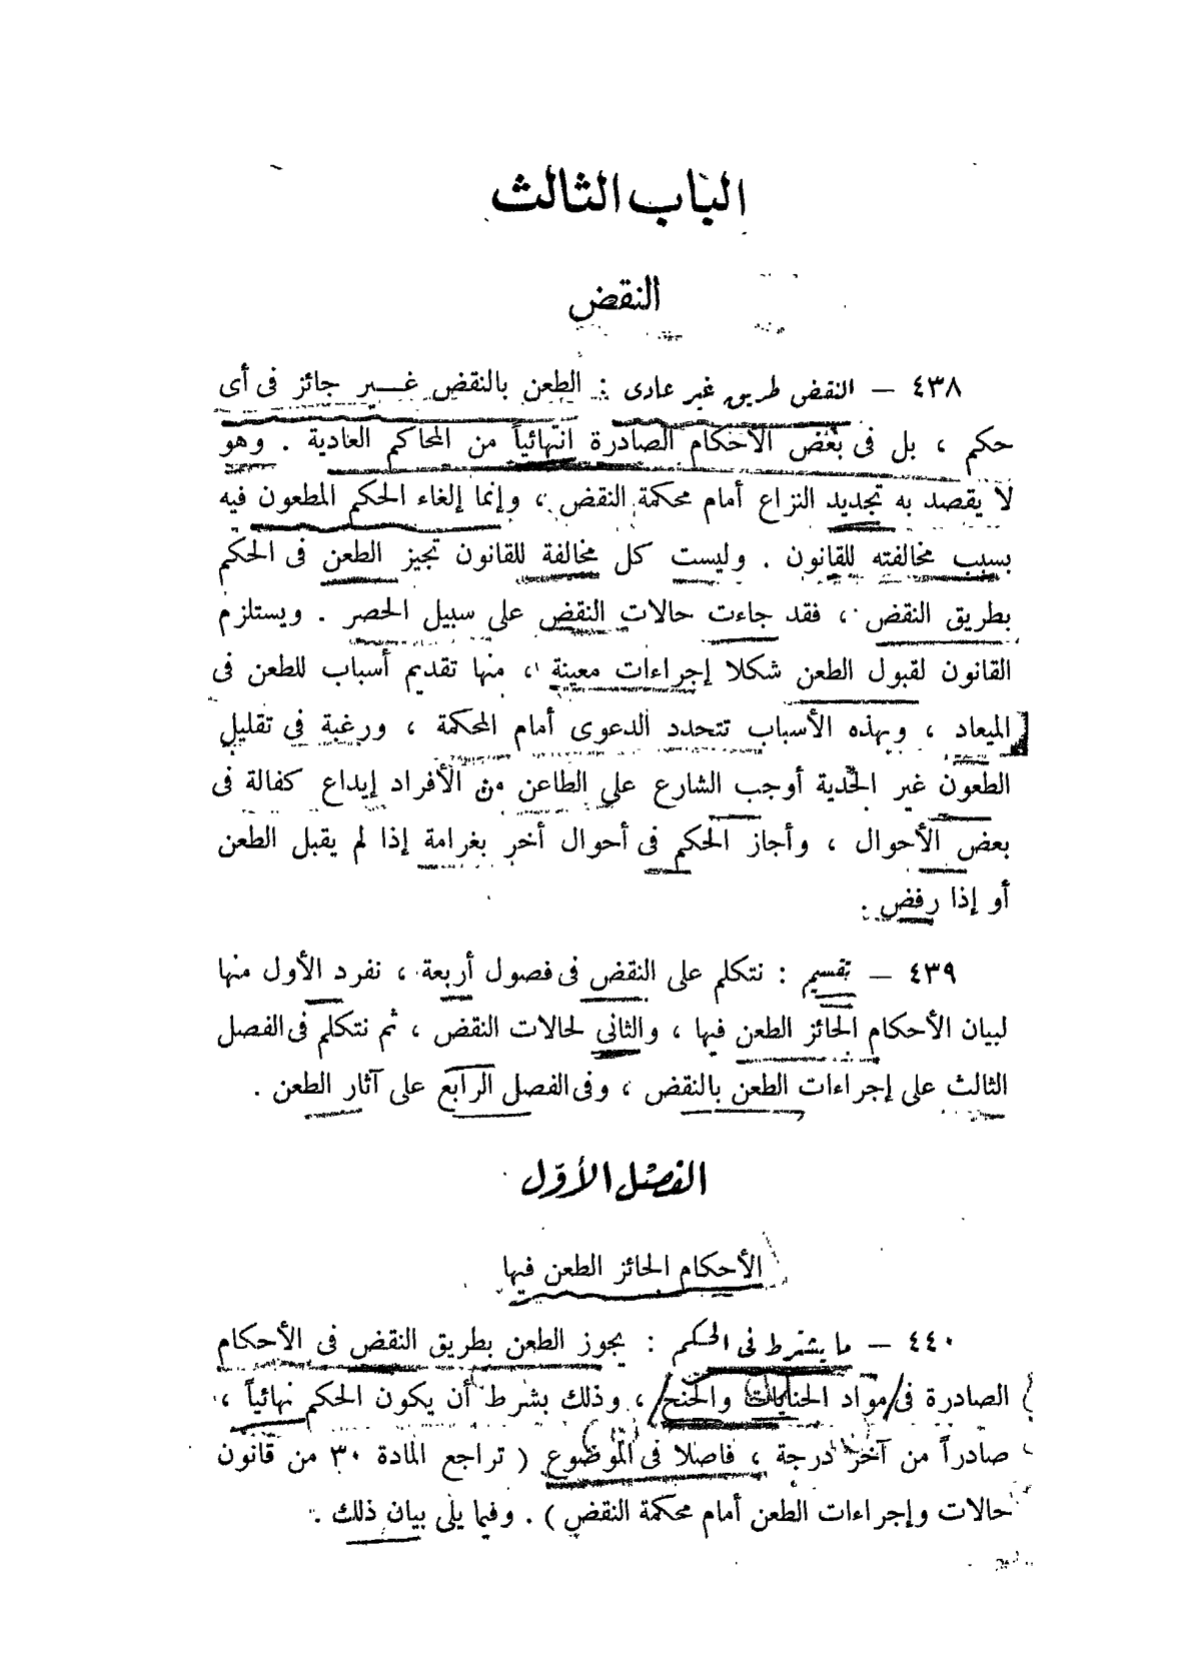 الباب الثالث
النقض
٤٣٨ — النقض طريق غير عادى : الطعن بالنقض غير جائز فى أى
حكم ، بل فى بعض الأحكام الصادرة انتهائياً من المحاكم العادية . وهو
لا يقصد به تجديد النزاع أمام محكمة النقض ، وإنما إلغاء الحكم المطعون فيه
بسبب مخالفته للقانون . وليست كل مخالفة للقانون تجيز الطعن فى الحكم
بطريق النقض ، فقد جاءت حالات النقض على سبيل الحصر . ويستلزم
القانون لقبول الطعن شكلا إجراءات معينة ، منها تقديم أسباب للطعن فى
الميعاد ، وبهذه الأسباب تتحدد الدعوى أمام المحكمة ، ورغبة فى تقليل
الطعون غير الجدية أوجب الشارع على الطاعن من الأفراد إيداع كفالة فى
بعض الأحوال ، وأجاز الحكم فى أحوال أخر بغرامة إذا لم يقبل الطعن
أو إذا رفض .
٤٣٩ — تقسيم : نتكلم على النقض فى فصول أربعة ، نفرد الأول منها
لبيان الأحكام الجائز الطعن فيها ، والثانى لحالات النقض ، ثم نتكلم فى الفصل
الثالث على إجراءات الطعن بالنقض ، وفى الفصل الرابع على آثار الطعن .
الفصل الأوّل
الأحكام الجائز الطعن فيها
٤٤٠ — ما يشترط فى الحكم : يجوز الطعن بطريق النقض فى الأحكام
الصادرة فى مواد الجنايات والجنح ، وذلك بشرط أن يكون الحكم نهائياً ،
صادراً من آخر درجة ، فاصلا فى الموضوع ( تراجع المادة ٣٠ من قانون
حالات وإجراءات الطعن أمام محكمة النقض ) . وفيما يلى بيان ذلك .